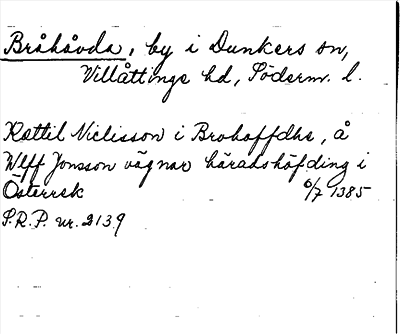 Bråhåvda, by i Dunkers sn,
Villåttinge hd, Söderm. l.
Kættil Niclisson i Brohoffdhe, å
Wlff Jonsson vägnar häradshöfding i
Österrek 6/7 1385
S.R.P. nr. 2139